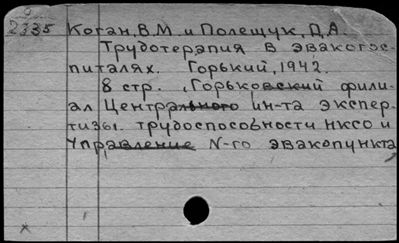 2335 Коган, В.М. и Полещук, Д.А.
Трудотерапия в эвакогос-
питалях. Горький, 1942.
8 стр. (Горьковский фили-
ал Центрального ин-та экспер-
тизы. трудоспособности НКСО и
Управление N-го эвакопункта)